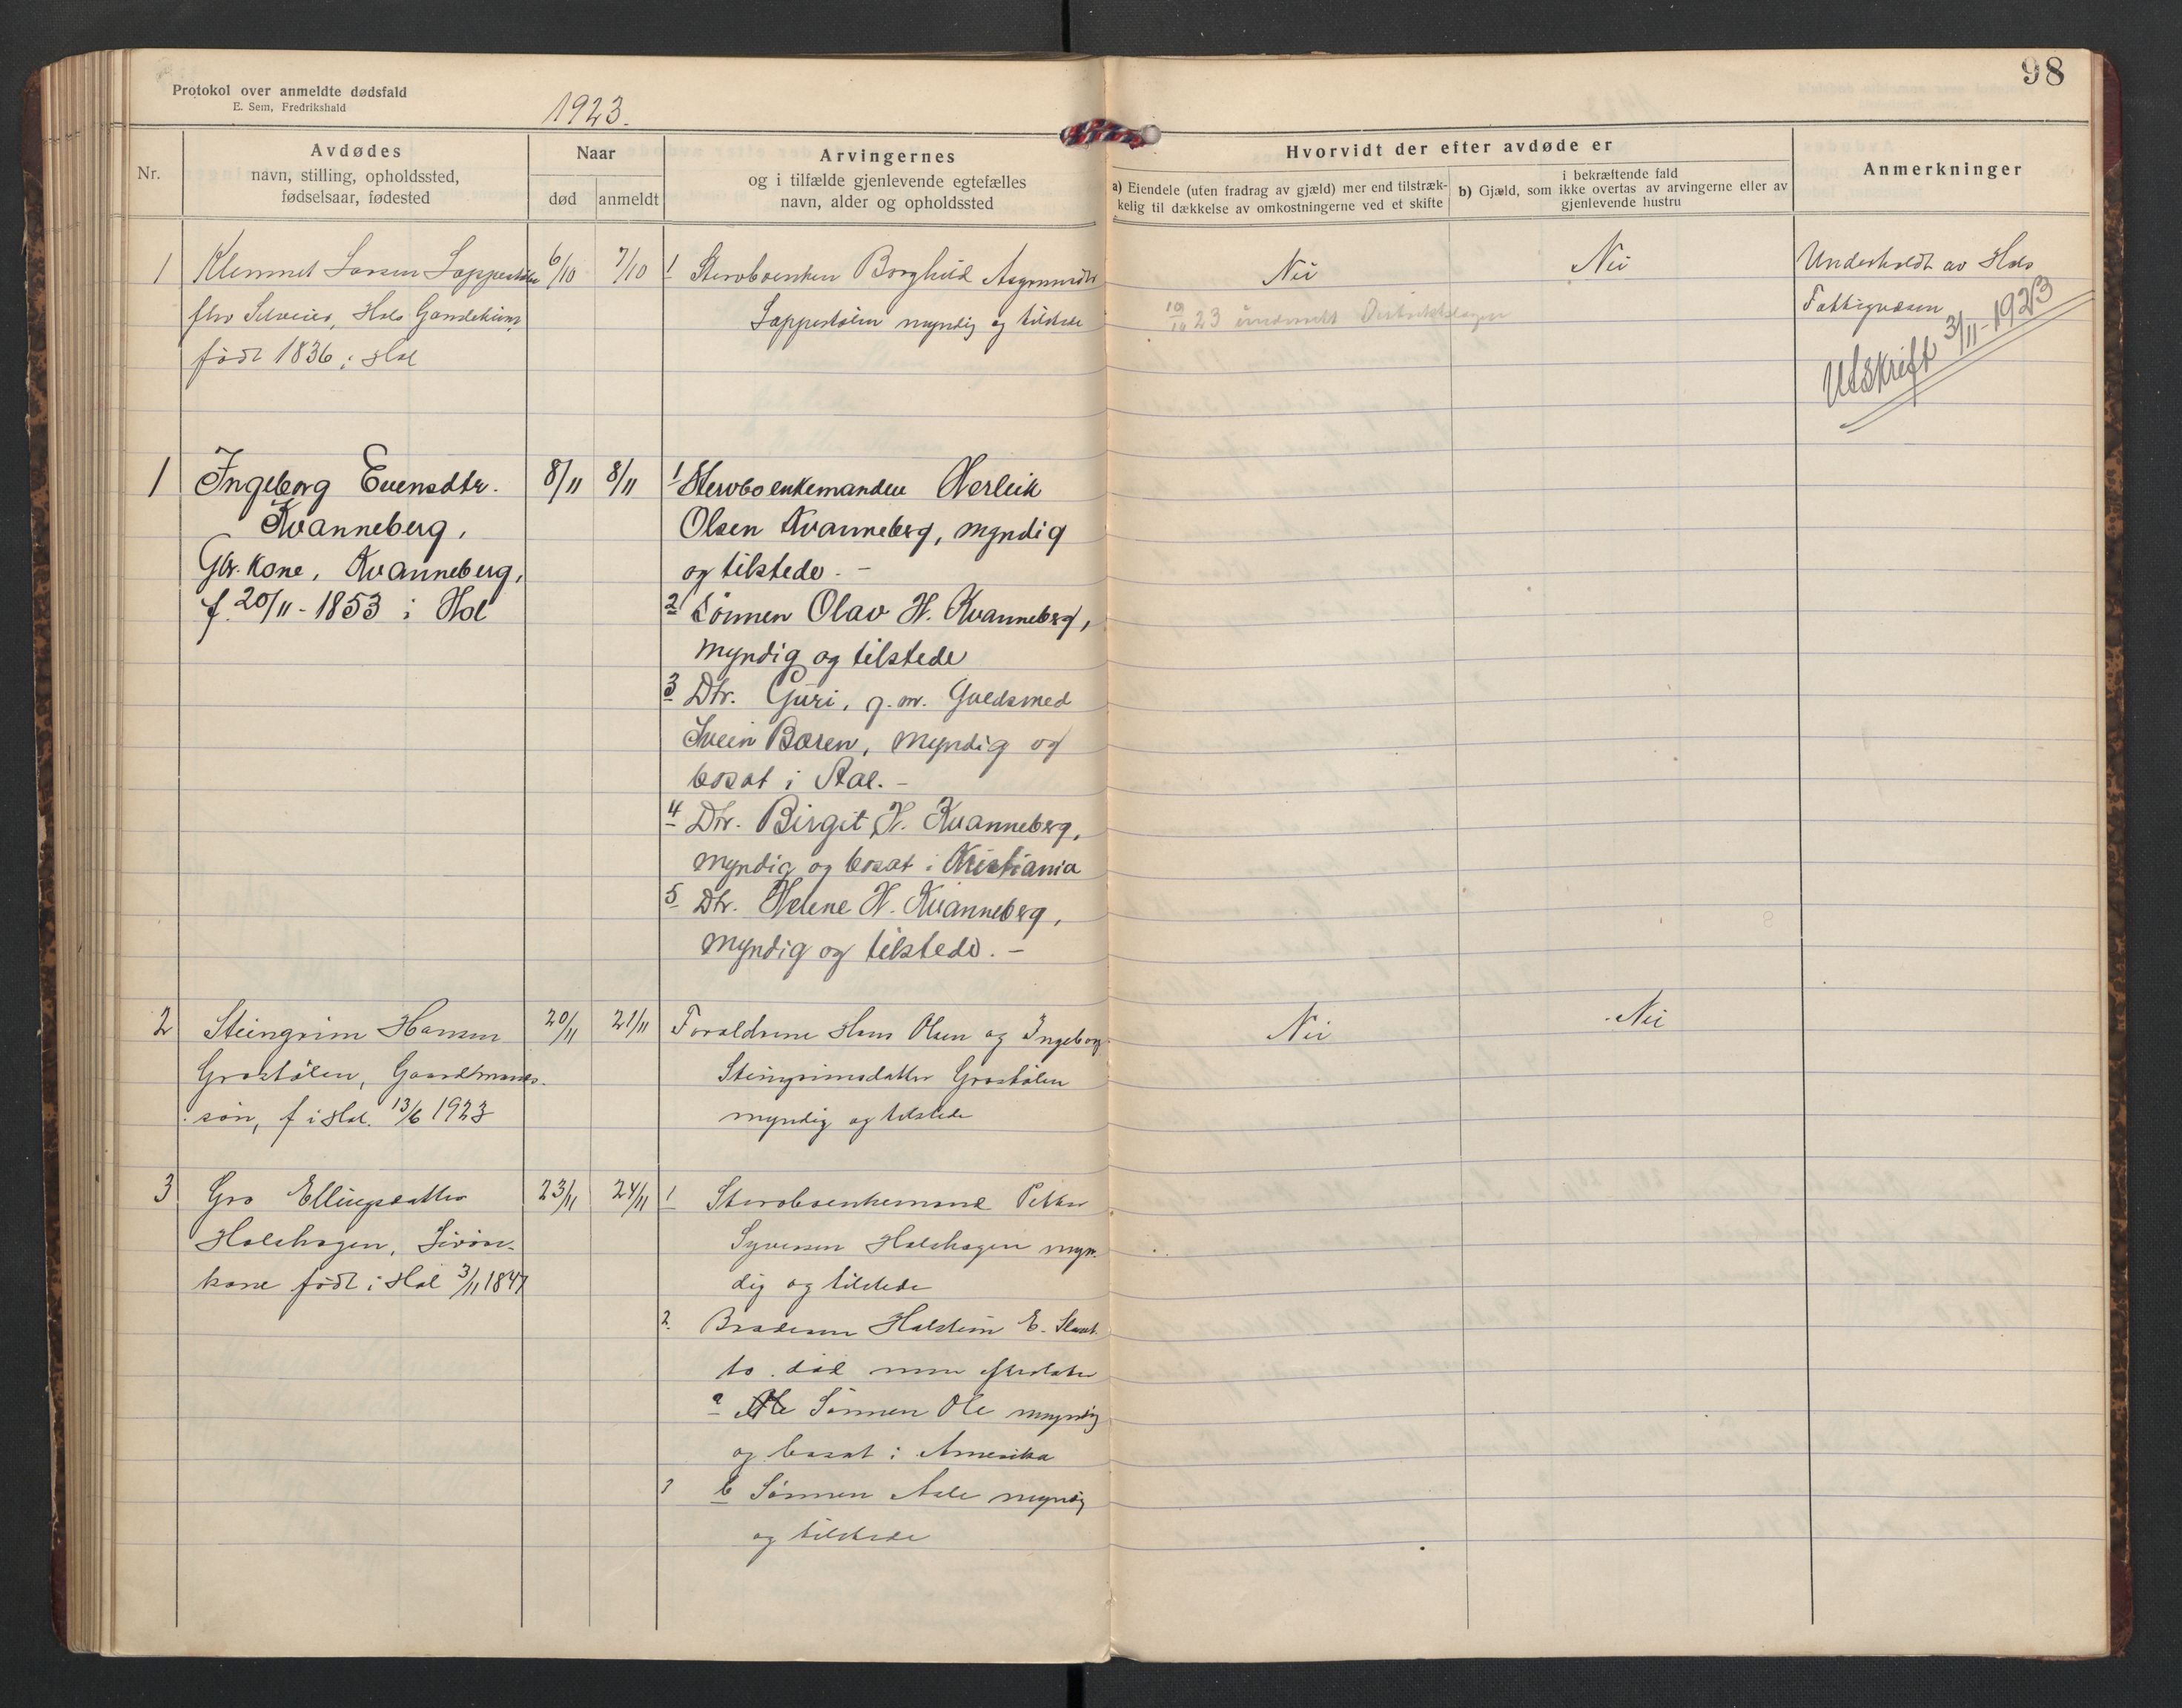 98
Protokol over anmeldte dødsfald
E. Sem, Fredrikshald
1923.
Nr.
Avdødes
navn, stilling, opholdssted,
fødselsaar, fødested
Naar
død
anmeldt
Arvingernes
og i tilfælde gjenlevende egtefælles
navn, alder og opholdssted
Hvorvidt der efter avdøde er
a) Eiendele (uten fradrag av gjæld) mer end tilstræk-
kelig til dækkelse av omkostningerne ved et skifte
i bekræftende fald
b) Gjæld, som ikke overtas av arvingerne eller av
gjenlevende hustru
Anmerkninger
1 Klemmet Larsen
fhv Selveier, Hols
født 1836 i Hol
6/10 7/10
1 Stervboenken Borghild
myndig og tilstede
Nei
Nei
10/10 23
Underholdt av Hols
Fattigvæsen
Utskrift 3/11-1923
1 Ingeborg Evensdtr.
Kvanneberg,
Gbr. kone, Kvanneberg,
f. 20/11-1853 i Hol
8/11 8/11
1 Stervboenkemanden Herleik
Olsen Kvanneberg, myndig
og tilstede. -
2 Sønnen Olav H. Kvanneberg,
myndig og tilstede
3 Dtr. Guri, g. m. Guldsmed
Svein Baren, myndig og
bosat i Aal. -
4 Dtr. Birgit H. Kvanneberg,
myndig og bosat i Kristiania
5 Dtr. Helene H. Kvanneberg,
myndig og tilstede. -
2 Steingrim Hansen
Grostølen, Gaardmands-
søn, f i Hol. 13/6 1923
20/11 21/11
Foraldrene Hans Olsen og Ingeborg
Steingrimsdatter Grostølen
myndig og tilstede
Nei
Nei
3 Gro Ellingsdatter
Holshagen,
kone født i Hol 3/11 1847
23/11 24/11
1 Stervboenkemand Petter
Syversen Holshagen myn-
dig og tilstede
2. Broderen Halstein E.
død men efterlater
a Ole Sønnen Ole myndig
og bosat i Amerika
b Sønnen Asle myndig
og tilstede